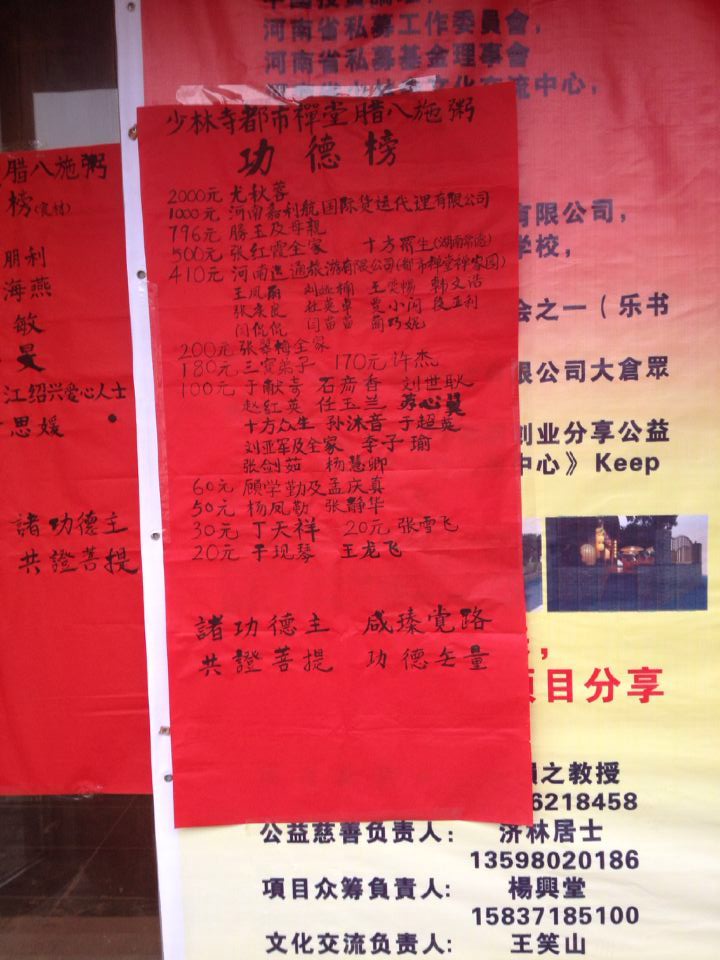 河南省私募工作委員會,
河南省私募基金理事會
少林寺都市禪堂腊八施粥
功德榜
2000元 尤秋蓉
1000元 河南嘉利航国际货运代理有限公司
796元 勝玉及母親
500元 张红霞全家 十方眾生(湖南常德)
410元 河南逍遥旅游有限公司(都市禅堂禅家园)
王凤丽
闫侃侃 闫苗苗
200元 张翠梅全家
180元 三宝弟子 170元 许杰
100元 于献奇 石苻香 刘世耿
赵红英 任玉兰
十方众生 孙沐音 于超英
刘亚军及全家 李子瑜
张剑茹 杨慧卿
60元 顾学勤及孟庆真
50元 杨凤勤 张静华
30元 丁天祥 20元 张雪飞
20元 于现琴 王龙飞
諸功德主 咸臻覚路
共證菩提 功德无量
腊八施粥
榜
朋利
海燕
敏
曼
江绍兴爱心人士
思媛
諸功德主
共證菩提
有限公司,
学校,
会之一(乐书
限公司大倉眾
创业分享公益
中心》Keep
项目分享
之教授
6218458
公益慈善负责人: 济林居士
13598020186
項目众筹負責人: 楊興堂
15837185100
文化交流负责人: 王笑山